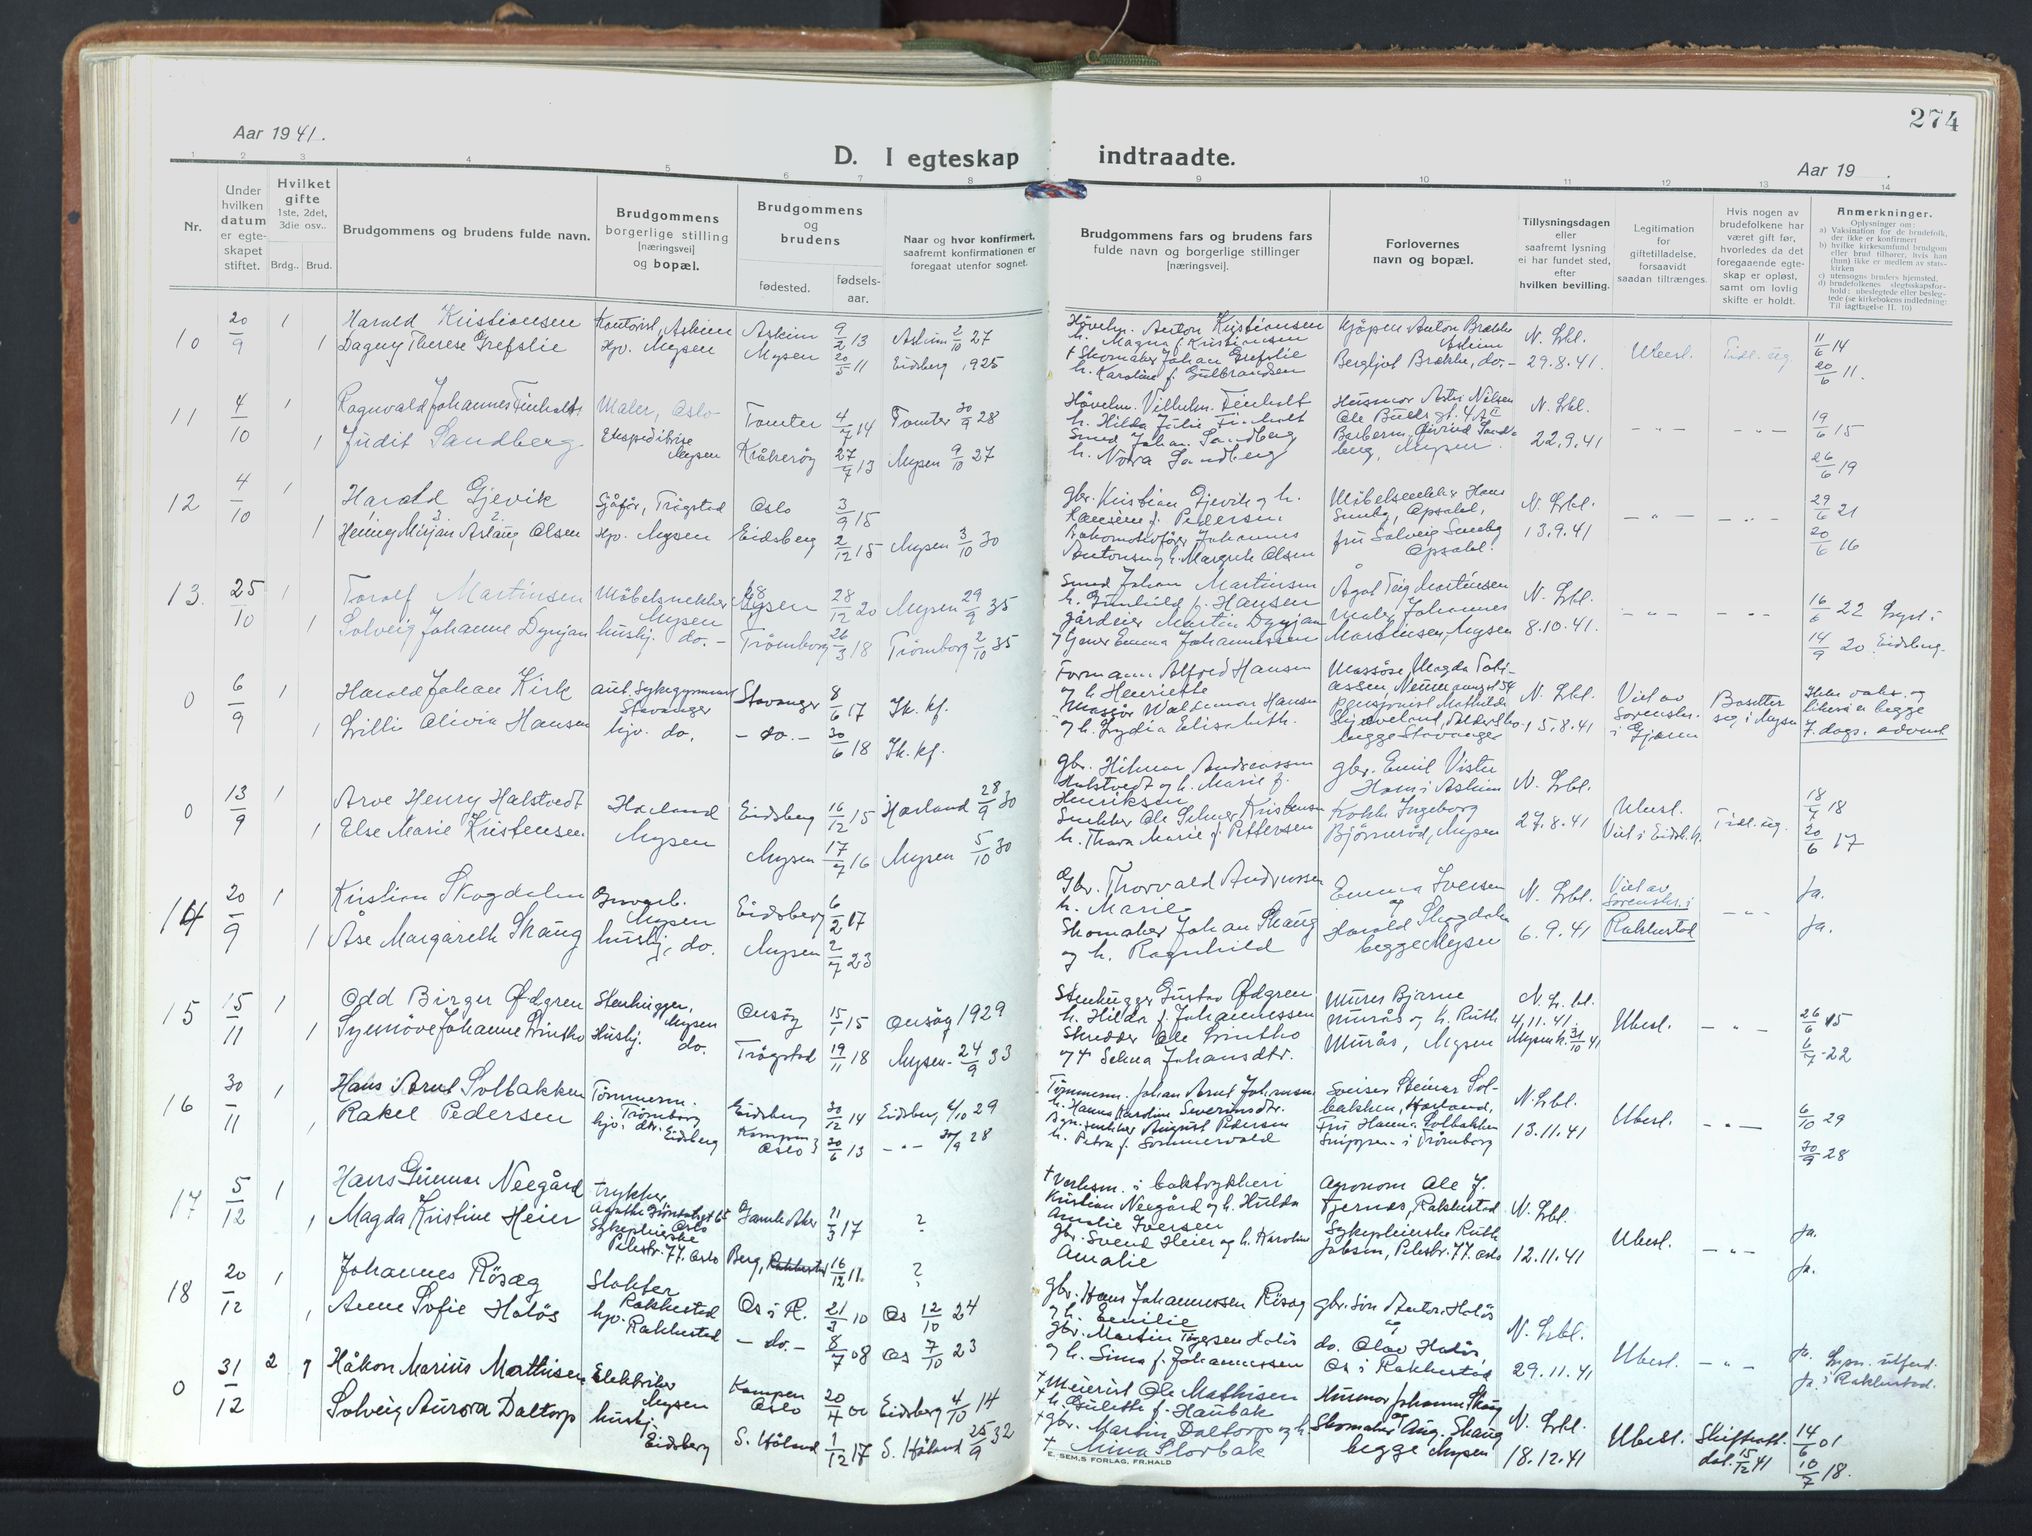 Aar 1941.
D. I egteskap indtraadte.
274
Aar 19 .
1 2 3 4 5 6 7 8 9 10 11 12 13 14
Nr.
Under hvilken datum er egteskapet stiftet.
Hvilket gifte 1ste, 2det, 3die osv..
Brdg.. Brud.
Brudgommens og brudens fulde navn.
Brudgommens borgerlige stilling [næringsvei] og bopæl.
Brudgommens og brudens
fødested.
fødsels-aar.
Naar og hvor konfirmert, saafremt konfirmationen er foregaat utenfor sognet.
Brudgommens fars og brudens fars fulde navn og borgerlige stillinger [næringsvei].
Forlovernes navn og bopæl.
Tillysningsdagen eller saafremt lysning ei har fundet sted, efter hvilken bevilling.
Legitimation for giftetilladelse, forsaavidt saadan tiltrænges.
Hvis nogen av brudefolkene har været gift før, hvorledes da det foregaaende egteskap er opløst, samt om lovlig skifte er holdt.
Anmerkninger.
Oplysninger om:
a) Vaksination for de brudefolk, der ikke er konfirmert
b) hvilke kirkesamfund brudgom eller brud tilhører, hvis han (hun) ikke er medlem av statskirken
c) utensogns bruders hjemsted.
d) brudefolkenes slegtsskapsforhold: ubeslegtede eller beslegtede (se kirkebokens indledning: Til iagttagelse II. 10)
10 20/9 1 Harald Kristiansen Kontorist, Askim Askim 9/2 13 Askim 2/10 27 Hövelm. Anton Kristiansen Kjöpm Anton Brække N. Lbl. 11/6 14
1 Dagny Therese Grefslie Hjv. Mysen Mysen 20/5 11 Eidsberg 1925 h. Magna f. Kristiansen Askim
† Skomaker Johan Grefslie Bergljot Brække, do.- 29.8.41. Ubesl. Tidl. ug 20/6 11.
h. Karoline f. Gulbrandsen
11 4/10 1 Ragnvald Johannes Finholt Maler, Oslo Tomter 4/7 14 Tomter 30/9 28 Hövelm. Vilhelm. Finholt N. Lbl. 19/6 15
1 Judit Sandberg Ekspeditrise Mysen Kråkeröy 27/7 13 Mysen 9/10 27 h. Hilda Julie
Smed Johan Sandberg 22.9.41 - " - - " - 26/6 19
h. Nora Sandberg Mysen
12 4/10 1 Harald Gjevik Sjåför, Trögstad Oslo 3/9 15 gbr. Kristian Gjevik og h. Möbelsnekker Hans N. Lbl. 29/6 21
1 Mirjan Aslaug Olsen Hjv. Mysen Eidsberg 2/12 15 Mysen 3/10 30 f. Pedersen Opsahl,
Lokomotivförer Johannes fru Solveig 13.9.41 - " - - " - 20/6 16
Antonsen og h. Margrete Olsen Opsahl.
13. 25/10 1 Toralf Martinsen Möbelsnekker Mysen Mysen 28/12 20 Mysen 29/9 35 Smed Johan Martinsen Martinsen N. Lbl. 16/6 22 Lyst i
1 Solveig Johanne Dynjan husbj. do.- Trömborg 26/3 18 Trömborg 2/10 35 h. Gunhild f. Hansen Maler Johannes
Gårdeier Martin Dynjan Martinsen, Mysen 8.10.41. - " - - " - 14/9 20 Eidsberg-
Emma Johannessen
0 6/9 1 Harald Johan Kirk aut. Sykegymnast Stavanger Stavanger 8/6 17 Ik. kf. Formann Alfred Hansen Massöse, Magda Tobiassen N. Lbl. Viet av Bosetter Ikke vaks. og
1 Lilli Olivia Hansen hjv. do. - do. - 30/6 18 Ik. kf. og h. Henriette Pensjonist Mathilde Sorenskr. seg i Mysen begge
Waldemar Hansen Skjæveland, 15.8.41 7. dags. advent
og h. Lydia Elisabeth. begge Stavanger
0 13/9 1 Arve Henry Halstvedt Harland Eidsberg 16/12 15 Harland 28/9 30 gbr. Hilmar Andreassen gbr. Emil N. Lbl. 18/7 18
1 Else Marie Kristensen Mysen Mysen 17/7 16 Mysen 5/10 30 Halstvedt og h. Marie f. Henriksen i Askim Ubesl.
Snekker Ole Kristensen Kokk Ingeborg 27.8.41 Viet i Eidsb. k. Tidl. ug. 20/6 17
h. Thora Marie f. Pettersen Björneröd, Mysen
14 20/9 1 Kristian Skogdalen Mysen Eidsberg 6/2 17 Gbr. Thorvald Andreassen Emma Iversen N. Lbl. Viet av Ja.
1 Åse Margareth Skaug husbj. do. Mysen 2/7 23 h. Marie og Sorenskr. i
Skomaker Johan Skaug Harald Skogdalen 6.9.41 Rakkestad - " - Ja.
og h. Ragnhild begge Mysen
15 15/11 1 Odd Birger Ödgren Stenhugger, Mysen Onsöy 15/1 15 Onsöy 1929 Stenhugger Gustav Ödgren Murer Bjarne N. Lbl. 26/6 15
1 Synnöve Johanne Lintho Husbj. do. Trögstad 19/11 18 Mysen- 24/9 33 h. Hilda f. Johannessen Murås og h. Ruth 4.11.41. Ubesl. - " - 6/7 -22
Skredder Ole Lintho Murås, Mysen Mysen k. 31/10 41
og † Selma Johansdtr.
16 30/11 1 Hans Arnt Solbakken Tömmerm. Trömborg Eidsberg 30/12 14 Eidsberg 6/10 29 Tömmerm. Johan Arnt Johansen Sveiser Steinar Solbakken, Harland, N. Lbl. 6/10 29
1 Rakel Pedersen hjv. Eidsberg Kampen Oslo 20/6 13 - " - 30/9 28 h. Hanna Karoline Severinsdtr. fru Hanna Solbakken Ubesl. - " -
August Pedersen 13.11.41 30/9 28
h. Petra f. Sommervold i Trömborg
17 5/12 1 Hans Gunnar Neegård Trykker, Oslo Gamle Aker 11/3 17 ? † Verksm. i boktrykkeri Agronom Ole J. N. Lbl. Ja.
1 Magda Kristine Heier Sykepleierske Pilestr. 77. Oslo Berg, Rakkestad 16/12 11. ? Kristian Neegård og h. Hulda Amalie Iversen Tjernæs, Rakkestad Ubesl. - " -
gbr. Svend Heier og h. Karoline Amalie Sykepleierske Ruth Jobsen, Pilestr. 77. Oslo 12.11.41 Ja.
18 20/12 1 Johannes Rösæg Slakter Rakkestad Os i R. 21/3 10 Os 12/10 24 gbr. Hans Johannessen Rösæg gbr. sön Anton Holös N. Lbl. Ja. Lysn. utferd.
1 Anne Sofie Holös hjv. Rakkestad - do. - 8/7 08 Os 7/10 23 og h. Emilie og
gbr. Martin Torgersen Holös do. Olav Holös, Ubesl. - " - Ja. i Rakkestad.
og h. Sina f. Johannessen Os i Rakkestad 29.11.41
0 31/12 2 1 Håkon Marius Mathisen Elektriker Mysen Kampen Oslo 20/4 00 Eidsberg 4/10 14 † Meierist Ole Mathisen Husmor Johanne Skaug N. Lbl. Ubesl. Skifteatt. 14/6 01
Solveig Aurora Daltorp husbj. Eidsberg S. Höland 1/12 17 S. Höland 25/9 32 † h. Gulette f. Haubak og
† gbr. Martin Daltorp og h. Skomaker Aug. Skaug 18.12.41 dat. 15/12 41 10/7 18.
† Mina Storbak begge Mysen
E. SEM.S FORLAG, FR.HALD